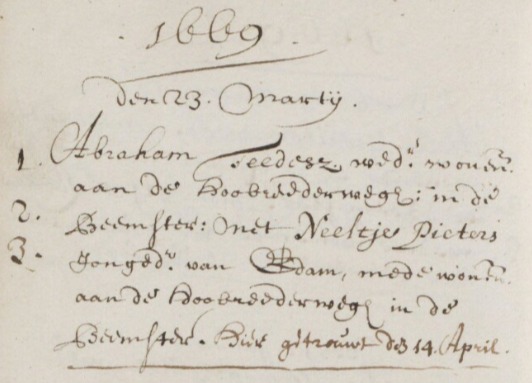 1669.
Den 23. Martij.
1. Abraham Teedesz, wedr. wonen.
aan de Hoobreederwegh: in de
2. Beemster: Met Neeltje Pieters
3. Jonged: van Edam, mede wonen.
aan de Hoobreederwegh in de
Beemster. Hier getrouwt den 14. April.